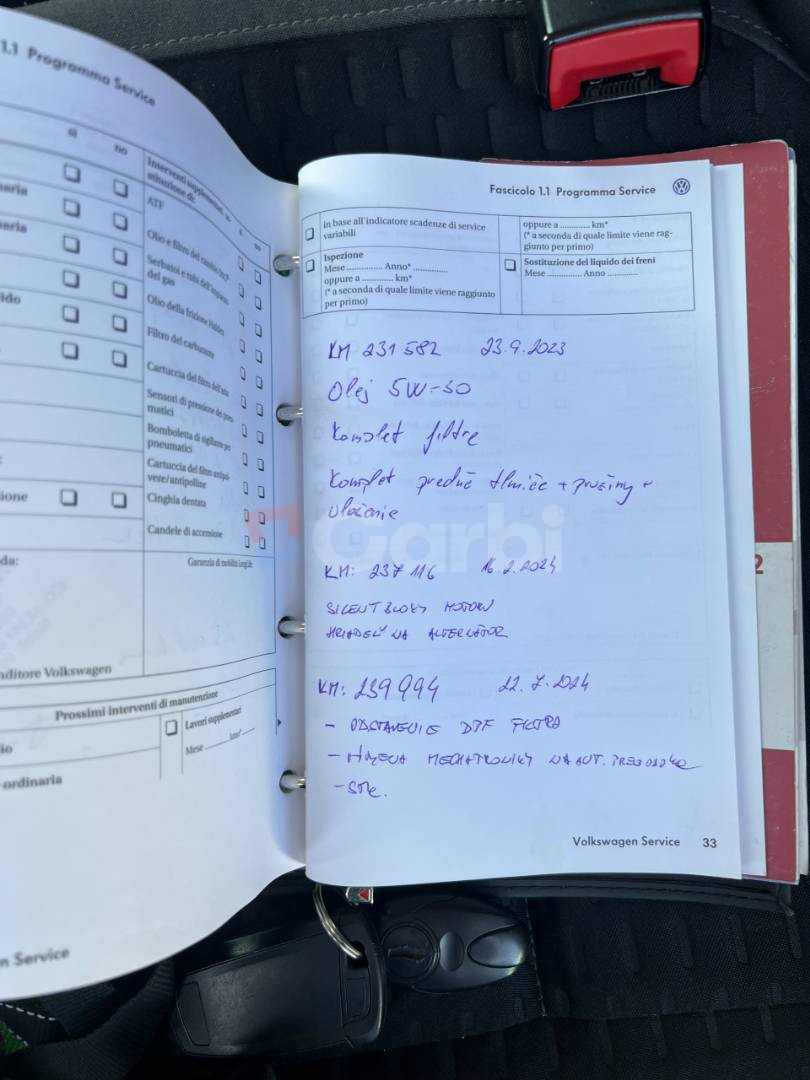 1.1 Programma Service
sì no
Interventi supplementari, so-
stituzione di:
sì no
ATF
Olio e filtro del cambio DSG®
Serbatoi e tubi dell'impianto
del gas
Olio della frizione Haldex
Filtro del carburante
Cartuccia del filtro dell'aria
Sensori di pressione dei pneu-
matici
Bomboletta di sigillante per
pneumatici
Cartuccia del filtro antipol-
vere/antipolline
Cinghia dentata
Candele di accensione
Garanzia di mobilità LongLife
nditore Volkswagen
Prossimi interventi di manutenzione
Lavori supplementari
Mese Anno*
ordinaria
n Service
Fascicolo 1.1 Programma Service
in base all'indicatore scadenze di service
variabili
oppure a ............ km*
(* a seconda di quale limite viene rag-
giunto per primo)
Ispezione
Mese ............... Anno* ..............
oppure a ............ km*
(* a seconda di quale limite viene raggiunto
per primo)
Sostituzione del liquido dei freni
Mese .............. Anno ............
KM 231 582 23.9.2023
Olej 5W-30
Komplet filtre
Komplet predné tlmiče + pružiny +
uloženie
Garbi
KM: 237 116 16.2.2024
SILENTBLOKY MOTORU
HRIADEĽ NA ALTERNÁTOR
KM: 239 994 22.7.2024
- ODSTAVENIE DPF FILTRA
- VÝMENA MECHATRONIKY NA AUT. PREVODOVKE
Volkswagen Service 33